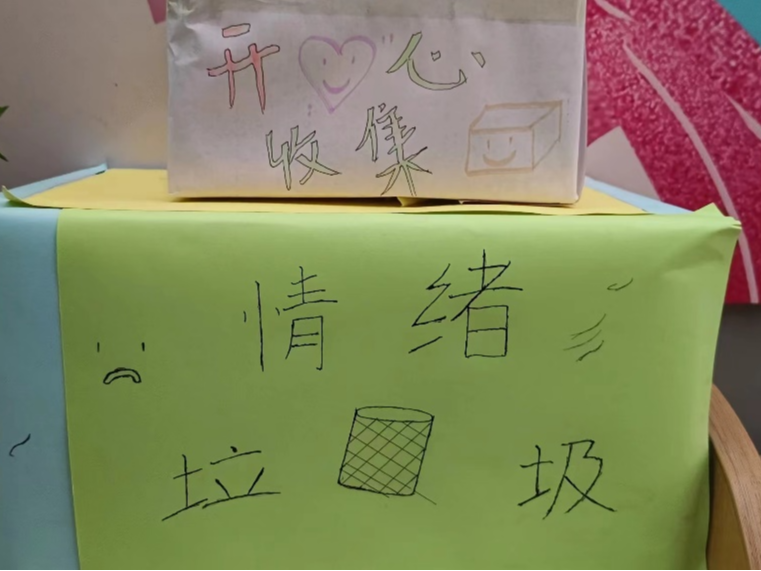 开心
收集
情绪
垃圾